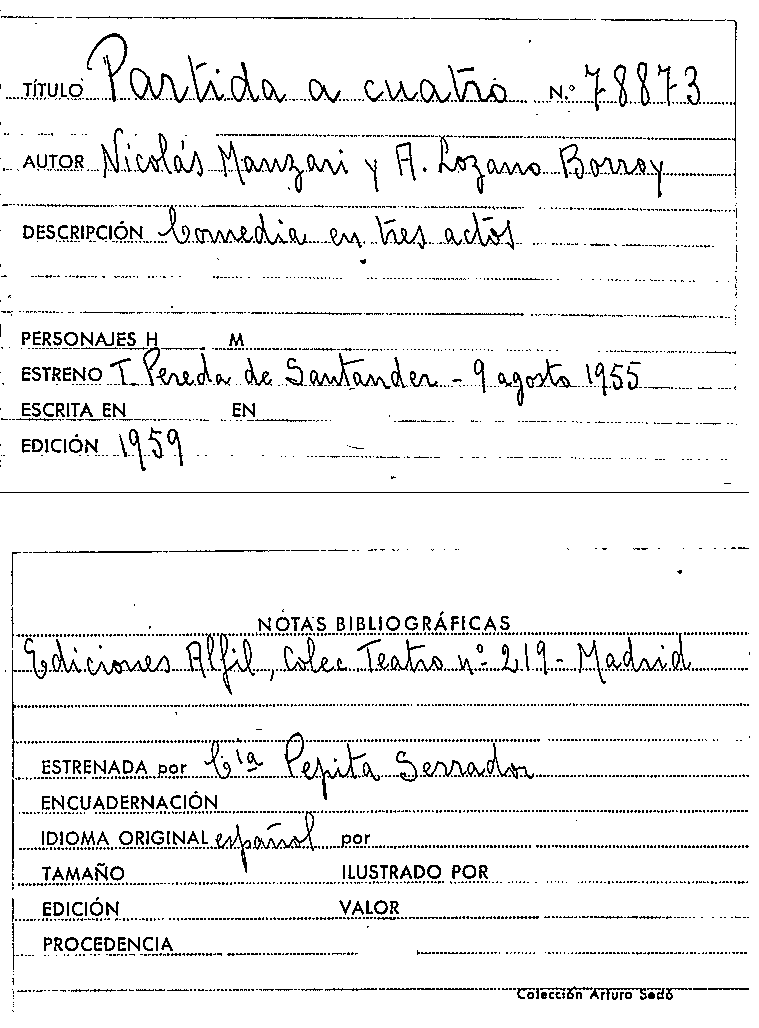 TÍTULO Partida a cuatro N.º 78873
AUTOR Nicolás Manzari y A. Lozano Borroy
DESCRIPCIÓN Comedia en tres actos
PERSONAJES H M
ESTRENO T. Pereda de Santander - 9 agosto 1955
ESCRITA EN EN
EDICIÓN 1959
NOTAS BIBLIOGRÁFICAS
Ediciones Alfil, Colec Teatro nº 219 - Madrid
ESTRENADA por Cía Pepita Serrador
ENCUADERNACIÓN
IDIOMA ORIGINAL español por
TAMAÑO ILUSTRADO POR
EDICIÓN VALOR
PROCEDENCIA
Colección Arturo Sedó